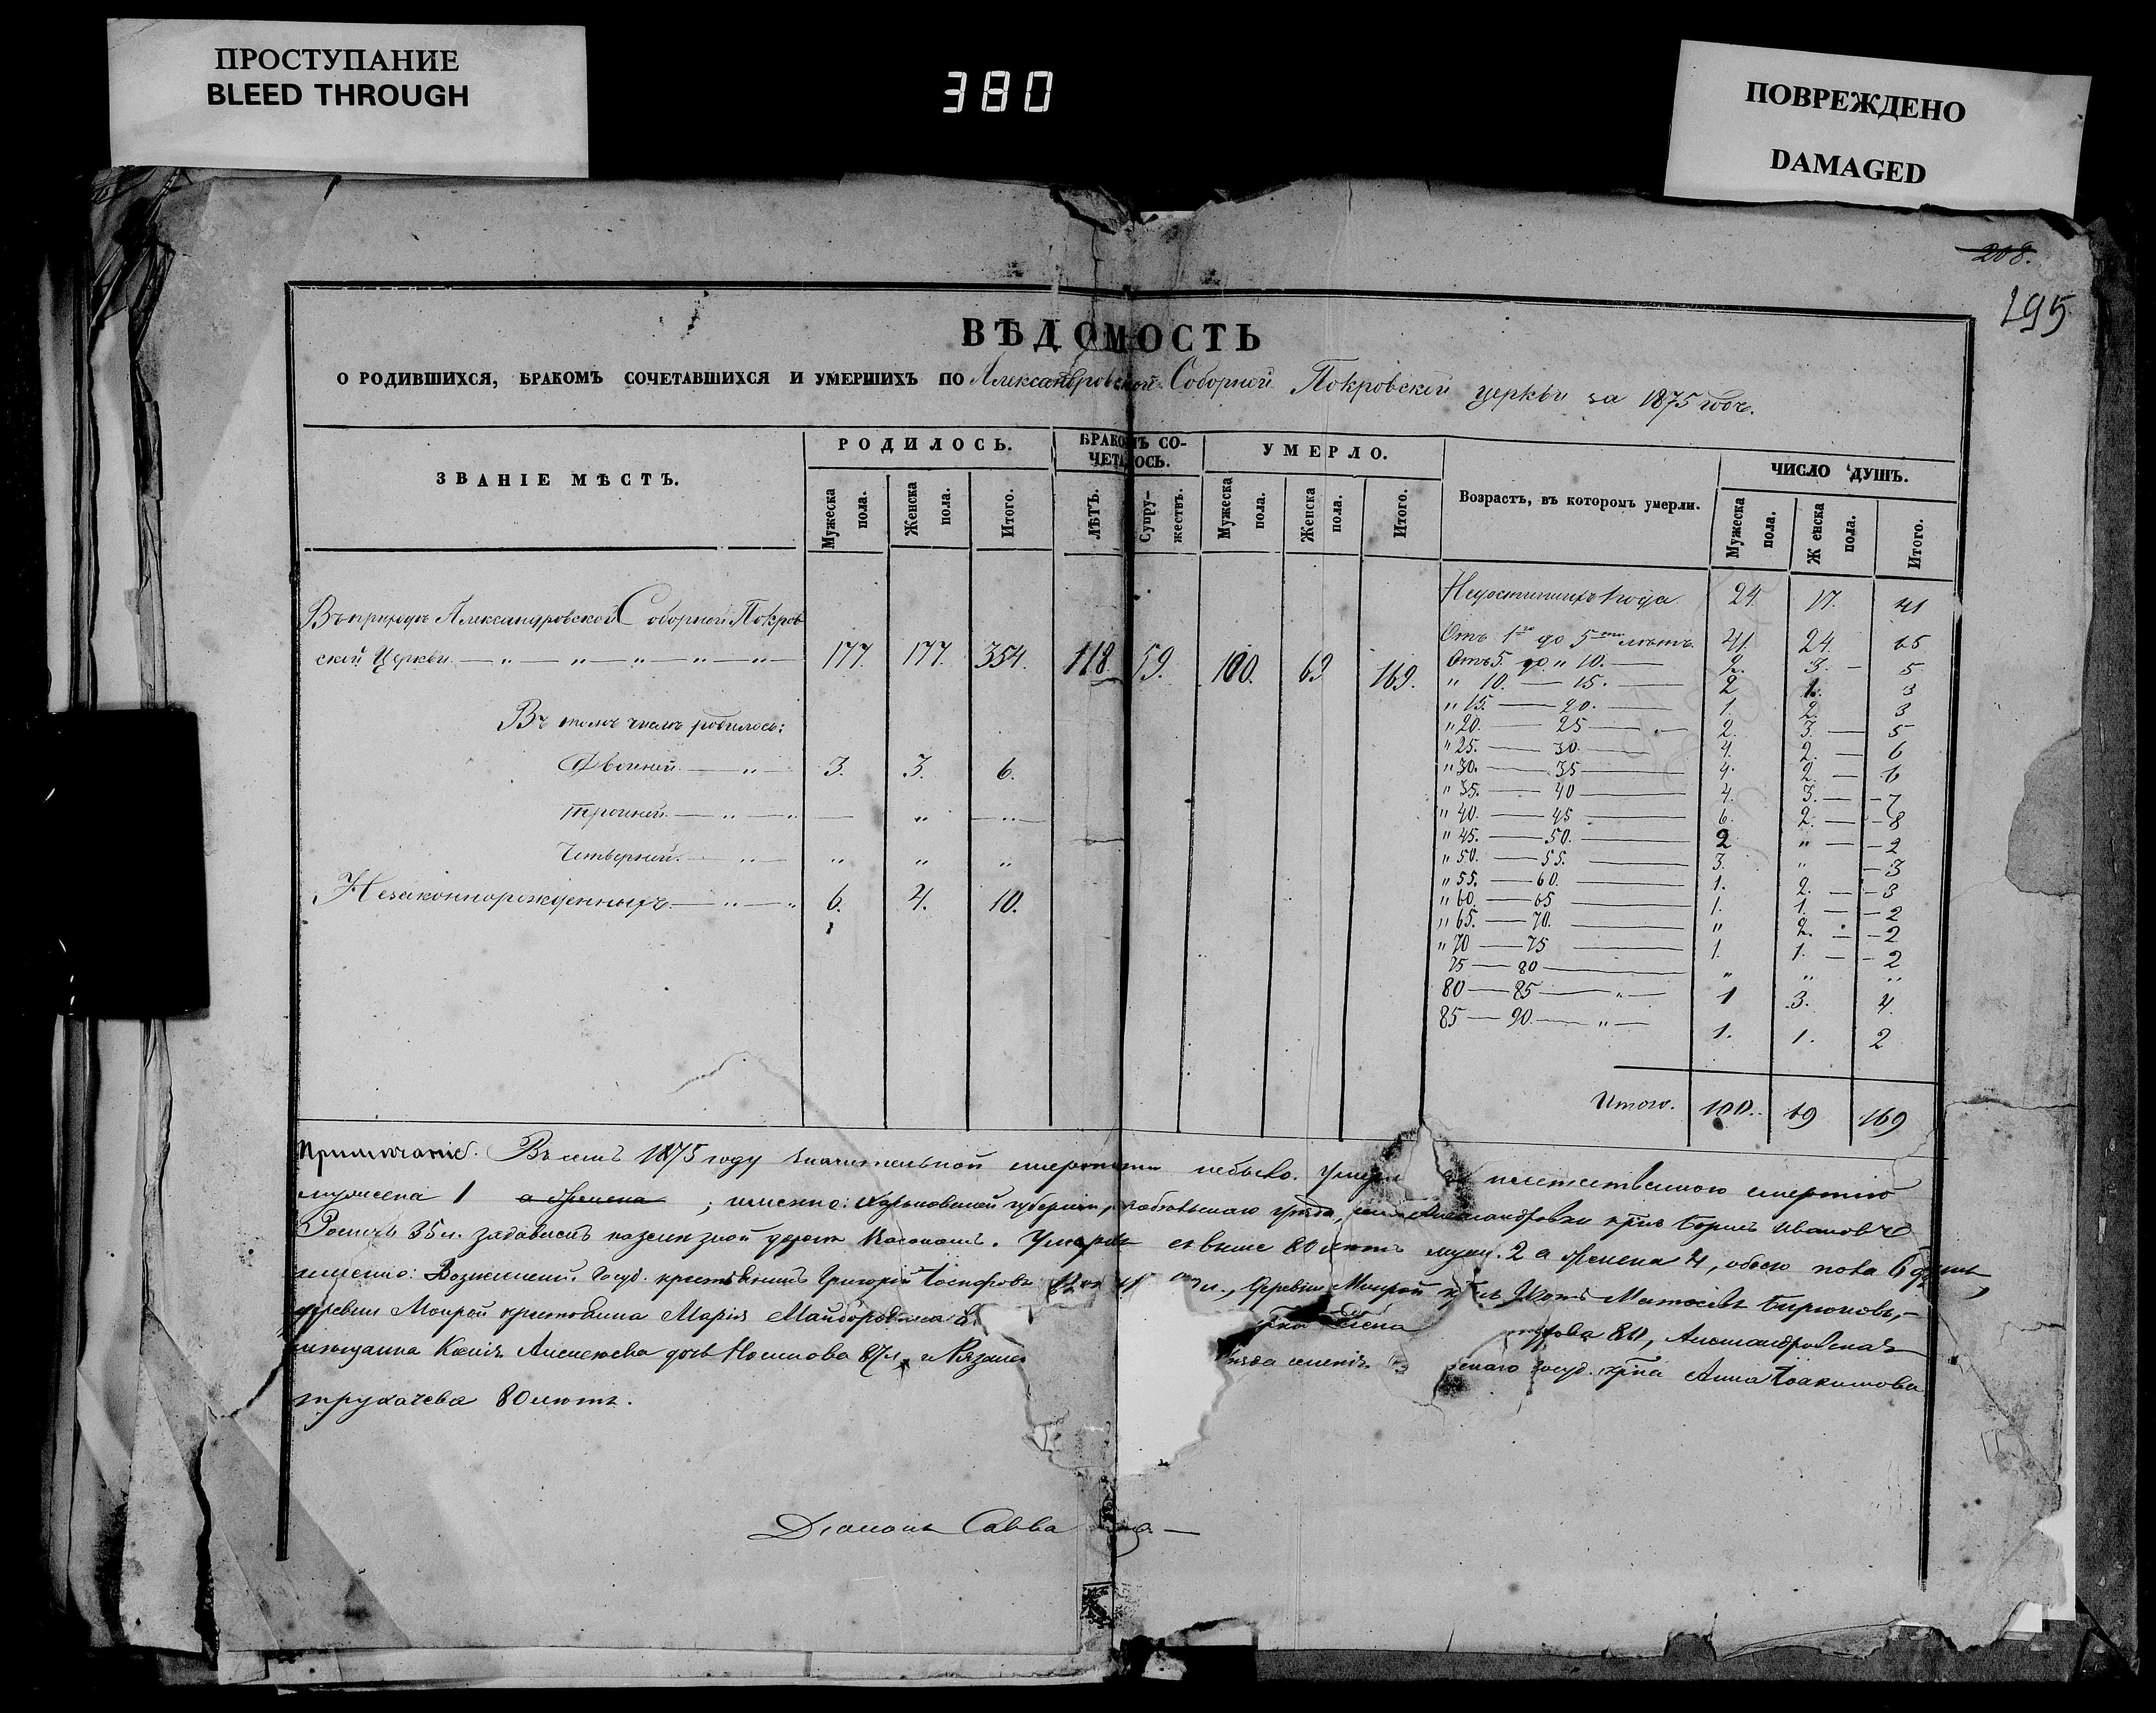 ПРОСТУПАНИЕ
BLEED THROUGH
380
ПОВРЕЖДЕНО
DAMAGED
268.
195
ВѢДОМОСТЬ
О РОДИВШИХСЯ, БРАКОМЪ СОЧЕТАВШИХСЯ И УМЕРШИХЪ ПО Александровской Соборной Покровской церкви за 1875 годъ.
ЗВАНІЕ МѢСТЪ.
РОДИЛОСЬ.
БРАКОМЪ СО-
ЧЕТАЛОСЬ.
УМЕРЛО.
Возрастъ, въ которомъ умерли.
ЧИСЛО ДУШЪ.
Мужеска пола.
Женска пола.
Итого.
ЛѢТЪ.
Супру-
жествъ.
Мужеска пола.
Женска пола.
Итого.
Мужеска пола.
Женска пола.
Итого.
Въ приходѣ Александровской Соборной Покров
ской Церкви. — „ — „ — „ — „ — „ — 177. 177. 354. 118 59. 100. 69 169.
Въ томъ числѣ родилось:
Двойней. — „ — 3. 3. 6.
Тройней. — „ — „ — „ — „ —
Четверней. — „ — „ „ „
Незаконнорожденныхъ — „ — „ 6. 4. 10.
Недостигшихъ 1 года. 24. 17. 41
Отъ 1го до 5ти лѣтъ. 41. 24. 65
Отъ 5. до „ 10. — 2. 3. — 5
„ 10. — 15. — 2 1. 3
„ 15. — 20. — 1. 2. 3
„ 20. — 25 — 2. 3. — 5
„ 25. — 30. — 4. 2. — 6
„ 30. — 35 — 4. 2. — 6
„ 35. — 40 — 4. 3. — 7
„ 40. — 45 — 6. 2. — 8
„ 45. — 50. — 2 „ — 2
„ 50. — 55. — 3. „ — 3
„ 55. — 60. — 1. 2. — 3
„ 60. — 65 — 1. 1. — 2
„ 65. — 70. — „ 2. — 2
„ 70 — 75 — 1. 1. — 2
75 — 80 — „ „ „
80 — 85 — „ — 1 3. 4.
85 — 90. — „ — 1. 1. 2
Итого. 100. 69 169
Примѣчаніе. Въ семъ 1875 году значительной смертности небыло. Умерли неестественною смертію
мужеска 1 а женска ; именно: Харьковской губерніи, уѣзда, Александровки Борисъ Ивановъ
35 л. задавленъ на желѣзной дорогѣ. Умерли свыше 80 лѣтъ муж. 2 а женска 4, обоего пола 6 душъ,
именно: Госуд. крестьянинъ Григорій Іосифовъ деревни Мокрой Матвѣевъ Бирюковъ,
деревни Мокрой крестьянка Марія 80, Александровская
мѣщанка Ксенія Алексѣева дочь 87 л. госуд. Анна Іоакимова
Трухачева 80 лѣтъ.
Діаконъ Савва